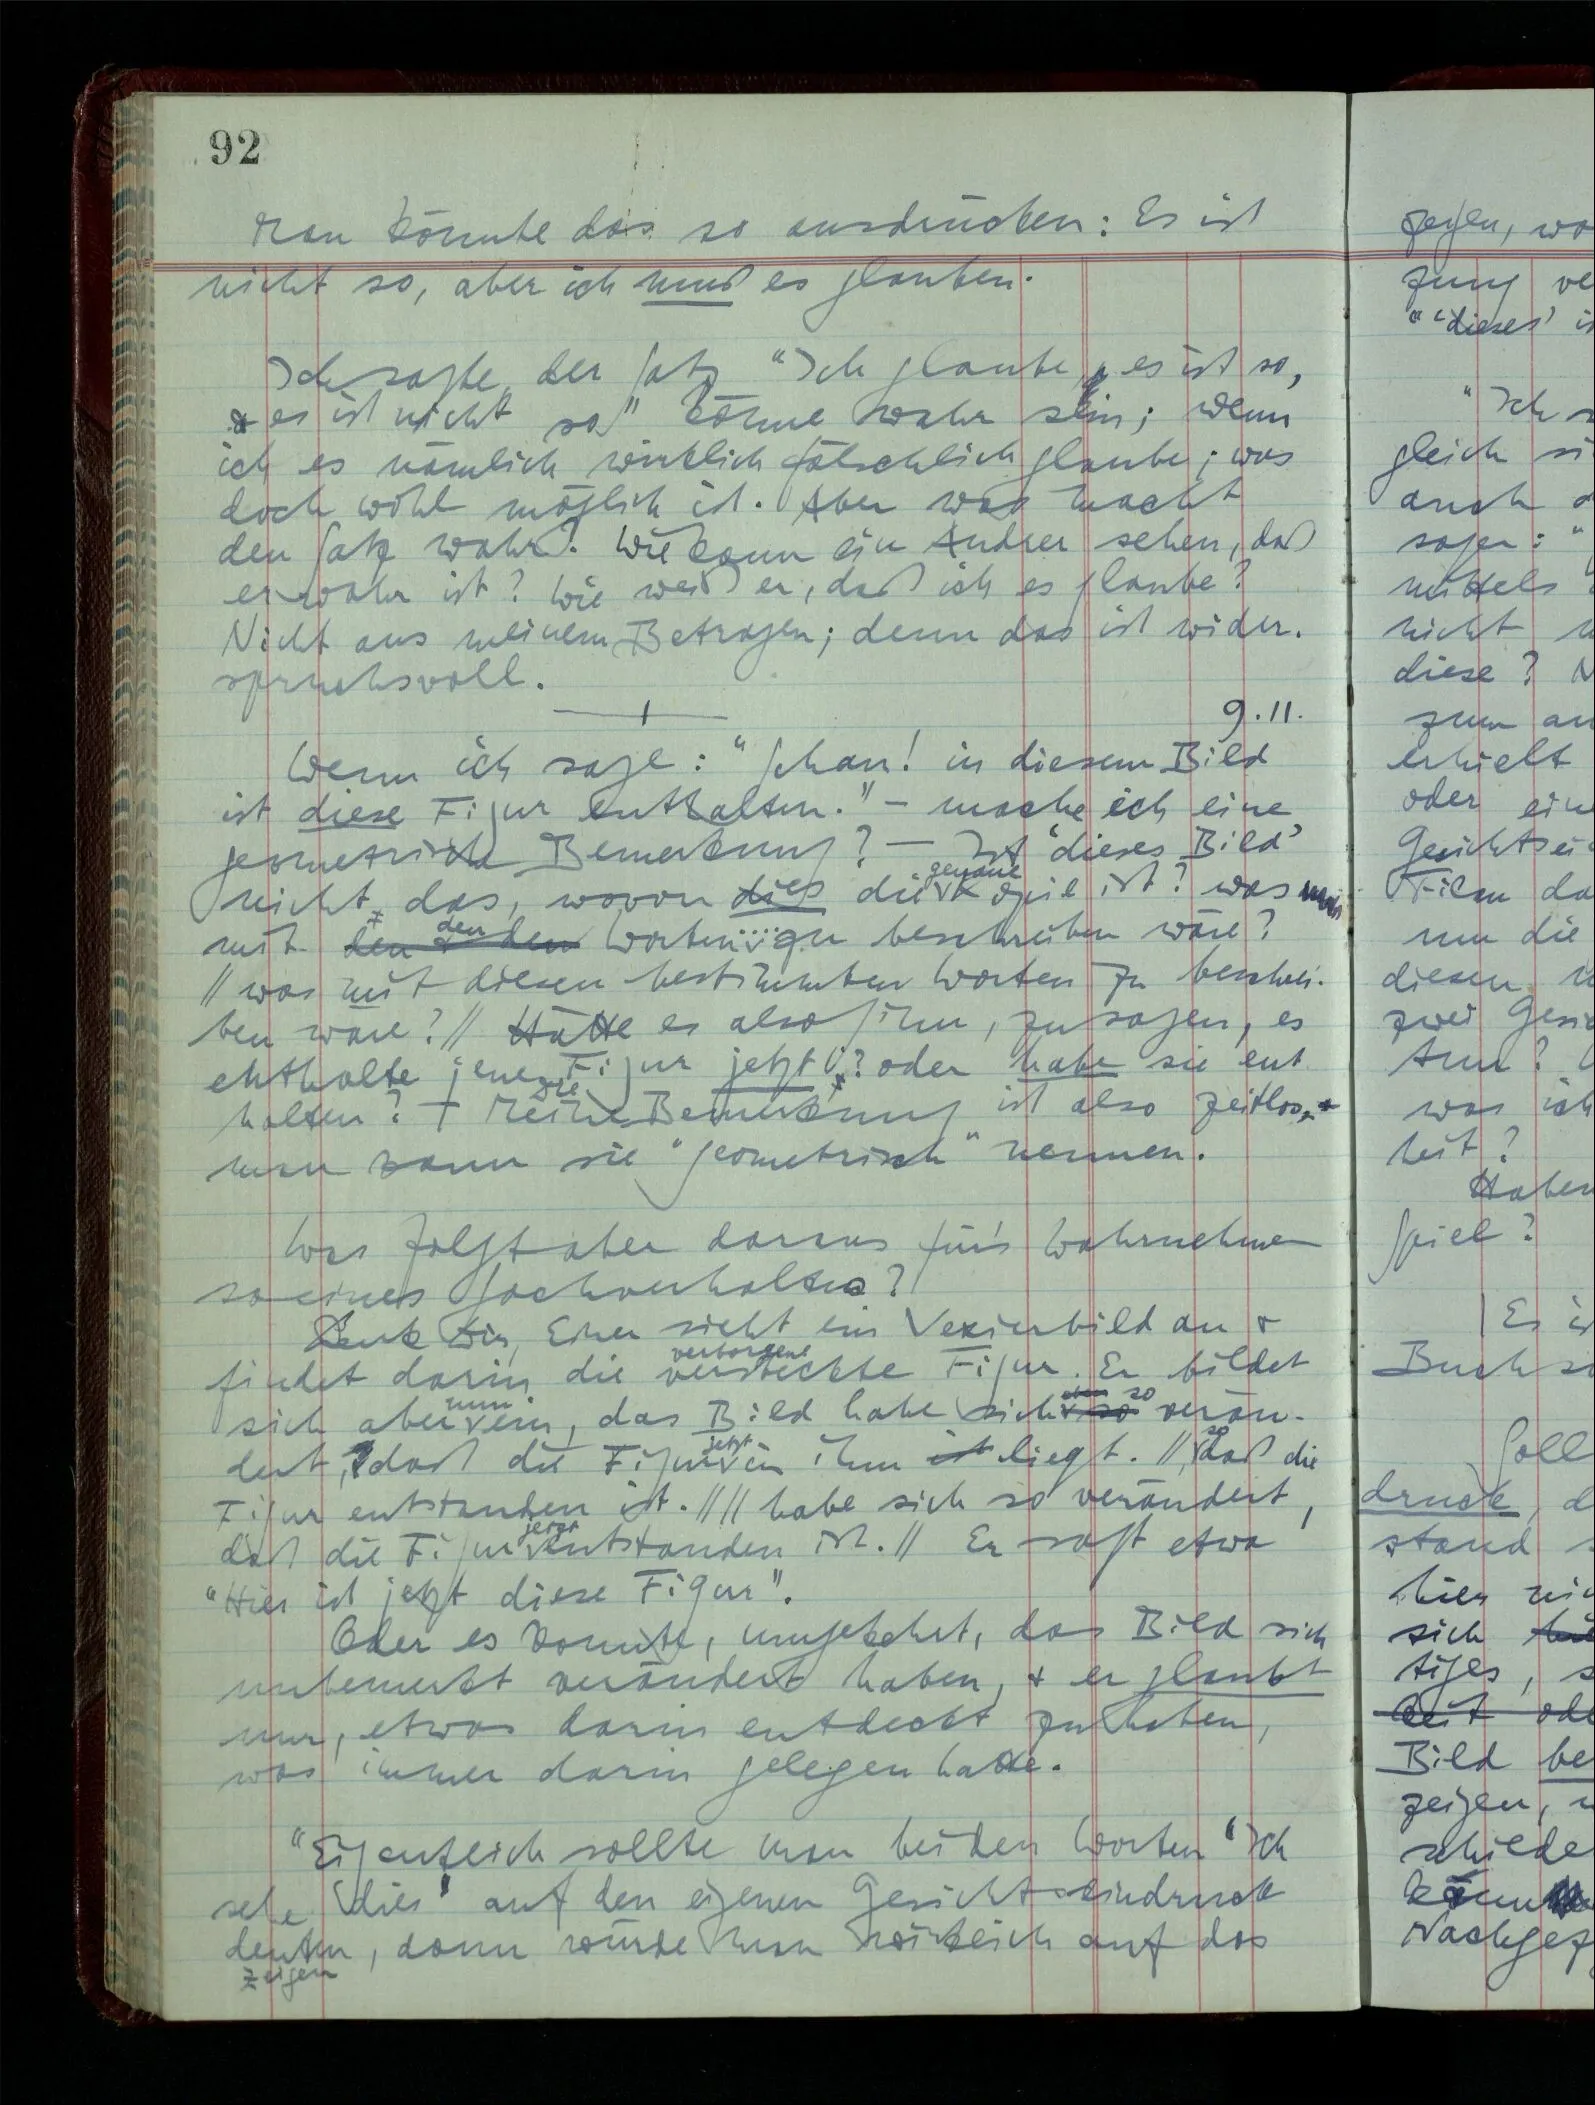 92
Man könnte das so ausdrücken: Es ist
nicht so, aber ich muß es glauben.
Ich sagte, der Satz "Ich glaube, es ist so,
& es ist nicht so" könne wahr sein; wenn
ich es nämlich wirklich fälschlich glaube; was
doch wohl möglich ist. Aber was macht
den Satz wahr? Wie kann ein Andrer sehen, daß
er wahr ist? Wie weiß er, daß ich es glaube?
Nicht aus meinem Betragen; denn das ist wider-
spruchsvoll.
9.11.
Wenn ich sage: "Schau! in diesem Bild
ist diese Figur enthalten." – mache ich eine
geometrische Bemerkung? – Ist 'dieses Bild'
nicht das, wovon dies die genaue Kopie ist? was
mit den & den Worten ... zu beschreiben wäre?
// was mit diesen bestimmten Worten zu beschrei-
ben wäre? // Hätte es also Sinn, zu sagen, es
enthalte jene Figur jetzt? oder habe sie ent
halten? – Die Bemerkung ist also zeitlos, &
man kann sie "geometrisch" nennen.
Was folgt aber daraus für's Wahrnehmen
so eines Sachverhaltes?
Denk Dir, Einer sieht ein Vexierbild an &
findet darin die verborgene versteckte Figur. Er bildet
sich aber nun ein, das Bild habe sich so verän-
dert, daß die Figur jetzt in ihm liegt. // so daß die
Figur entstanden ist. // // habe sich so verändert,
daß die Figur jetzt entstanden ist. // Er sagt etwa
"Hier ist jetzt diese Figur".
Oder es könnte, umgekehrt, das Bild sich
unbemerkt verändert haben, & er glaubt
nur, etwas darin entdeckt zu haben,
was immer darin gelegen hatte.
"Eigentlich sollte man bei den Worten 'Ich
sehe dies' auf den eigenen Gesichtseindruck
deuten, dann würde man wirklich auf das
zeigen
zeigen, wo
zung ve
"'dieses' is
"Ich s
gleich si
auch d
sagen: "
mittels
nicht
diese? N
zum an
erhielt
oder ein
Gesichtsei
Film da
um die
diesen
zwei Gesi
tun?
was ich
heit?
Haben
Spiel?
Es is
Buch
Soll
druck, d
stand s
hier nic
sich
tiges, s
keit ode
Bild be
zeigen,
schilde
könn
Nachgez